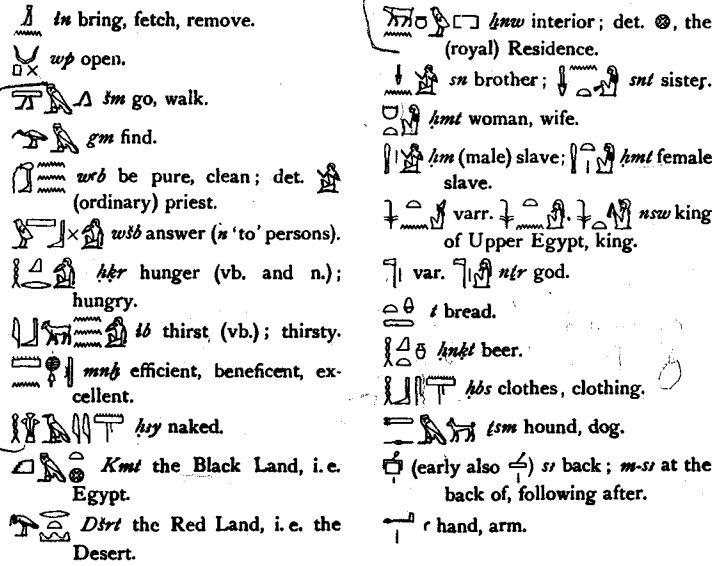 ỉn bring, fetch, remove.
wp open.
šm go, walk.
gm find.
wꜥb be pure, clean; det.
(ordinary) priest.
wšb answer (n 'to' persons).
ḥḳr hunger (vb. and n.);
hungry.
ỉb thirst (vb.); thirsty.
mnḫ efficient, beneficent, ex-
cellent.
ḥꜣy naked.
Kmt the Black Land, i.e.
Egypt.
Dšrt the Red Land, i.e. the
Desert.
ẖnw interior; det. 𓊖, the
(royal) Residence.
sn brother; snt sister.
ḥmt woman, wife.
ḥm (male) slave; ḥmt female
slave.
varr. . nsw king
of Upper Egypt, king.
var. nṯr god.
t bread.
ḥnḳt beer.
ḥbs clothes, clothing.
ṯsm hound, dog.
(early also ) sꜣ back; m-sꜣ at the
back of, following after.
ꜥ hand, arm.